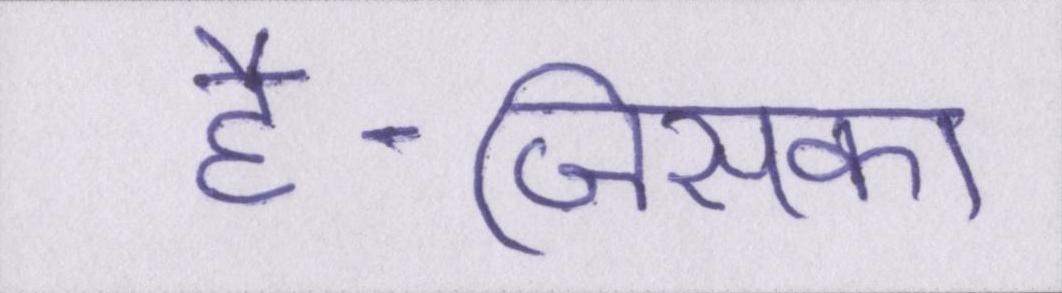 है-जिसका